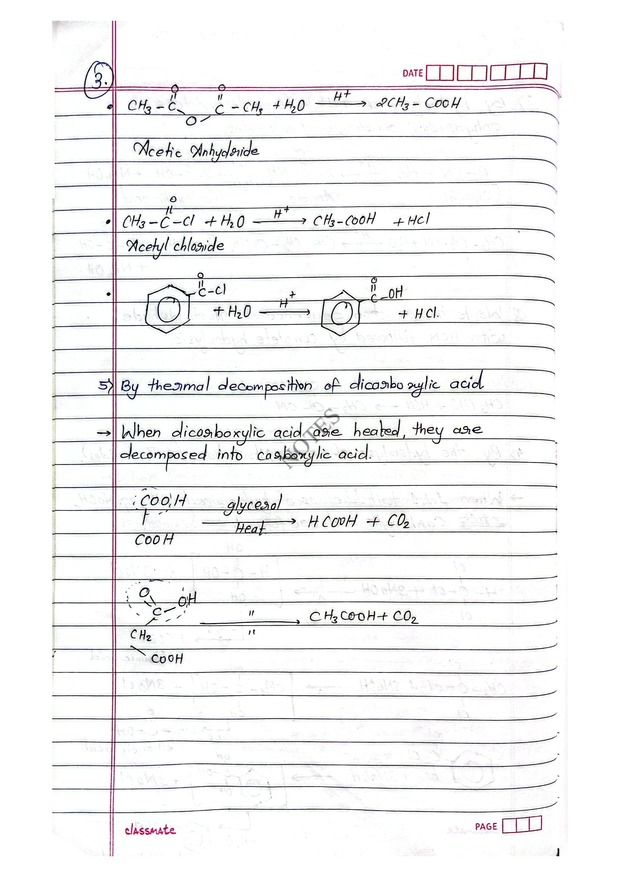 3.
DATE
CH3 – C – O – C – CH3 + H2O H+ → 2CH3 – COOH
O O
Acetic Anhydride
O
• CH3 – C – Cl + H2O H+ → CH3 – COOH + HCl
Acetyl chloride
O
C – Cl + H2O H+ → C – OH + HCl.
O
5) By thermal decomposition of dicarboxylic acid
→ When dicarboxylic acid are heated, they are
decomposed into carboxylic acid.
NOTES
COOH
COOH
glycerol
Heat → HCOOH + CO2
O
C – OH
CH2
COOH
"
" → CH3COOH + CO2
classmate
PAGE